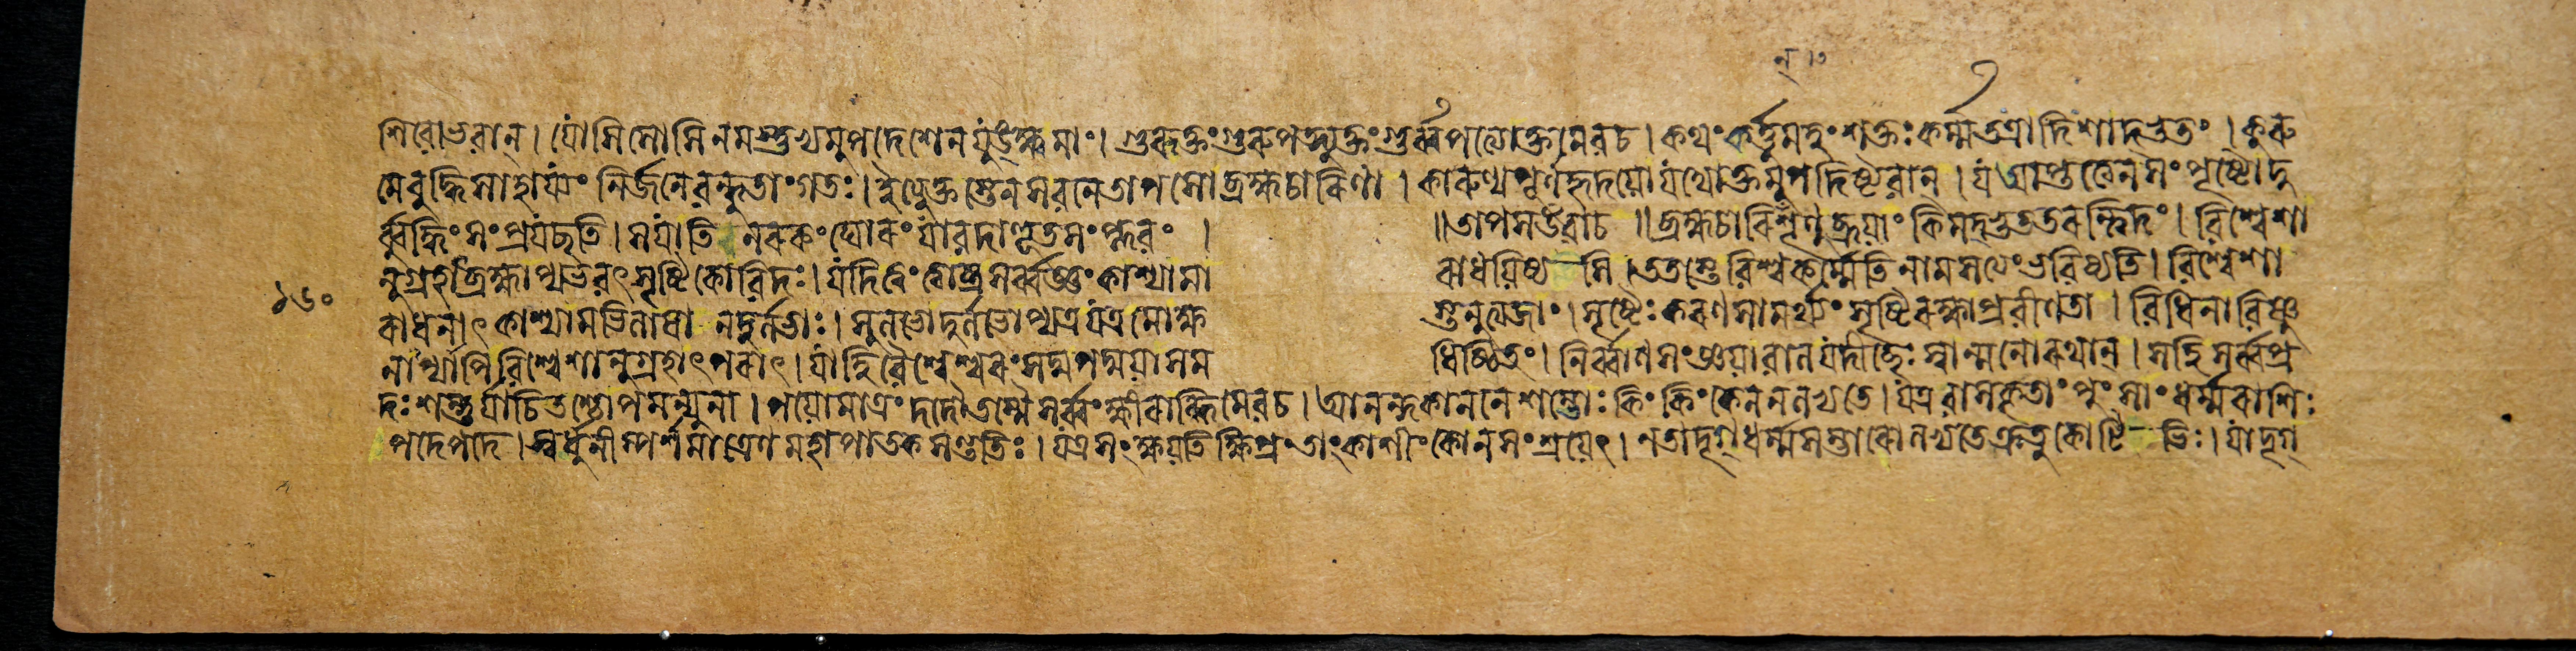 শিবোভবান্। যোসিসোসিনমস্তুভ্যমুপদেশেনযুংক্ষ্বমাং। গুরূক্তংগুরুপত্ন্যুক্তংগুর্ব্বপত্যোক্তমেবচ। কথংকর্ত্তুমহংশক্তঃকর্ম্মতত্রাদিশাদ্ভুতং। কুরু
মেবুদ্ধিসাহায্যংনির্জনেবন্ধুতাংগতঃ। ইত্যুক্তস্তেনসবনেতাপসোব্রহ্মচারিণা। কারুণ্যপূর্ণহৃদয়োযথোক্তমুপদিষ্টবান্। যআপ্তত্বেনসংপৃষ্টোদু
র্ব্বুদ্ধিংসংপ্রযচ্ছতি। সযাতিনরকংঘোরংযাবদাভূতসংপ্লবং। ॥তাপসউবাচ॥ ব্রহ্মচারিন্শৃণুব্রূয়াংকিমদ্ভুততরন্ত্বিদং। বিশ্বেশা
নুগ্রহাদ্ব্রহ্মাপ্যভবৎসৃষ্টিকোবিদঃ। যদিত্বংত্বাষ্ট্রসর্ব্বজ্ঞংকাশ্যামা রাধয়িষ্যসি। ততস্তেবিশ্বকর্ম্মেতিনামসত্যংভবিষ্যতি। বিশ্বেশা
১৬০ রাধনাৎকাশ্যামভিলাষানদুর্লভাঃ। সুলভোদুর্লভোপ্যত্রযত্রমোক্ষ স্তনুত্যজাং। সৃষ্টেঃকরণসামর্থ্যংসৃষ্টিরক্ষাপ্রবীণতা। বিধিনাবিষ্ণু
নাপ্যাপিবিশ্বেশানুগ্রহাৎপরাৎ। যাহিবৈশ্বেশ্বরংসদ্মপদ্ময়াসম ধিষ্ঠিতং। নির্ব্বাণসংজ্ঞয়াবালযদীচ্ছেঃস্বান্মনোরথান্। সহিসর্ব্বপ্র
দঃশম্ভুর্যাচিতশ্চোপমন্যুনা। পয়োমাত্রংদদৌতস্মৈসর্ব্বংক্ষীরাব্ধিমেবচ। আনন্দকাননেশম্ভোঃকিংকিংকেননলভ্যতে। যত্রবাসকৃতাংপুংসাংধর্ম্মরাশিঃ
পদেপদে। স্বর্ধুনীস্পর্শমাত্রেণমহাপাতকসন্ততিঃ। যত্রসংক্ষয়তিক্ষিপ্রংতাংকাশীংকোনসংশ্রয়েৎ। নতাদৃগ্ধর্ম্মসম্ভারোলভ্যতেক্রতুকোটিভিঃ। যাদৃগ্